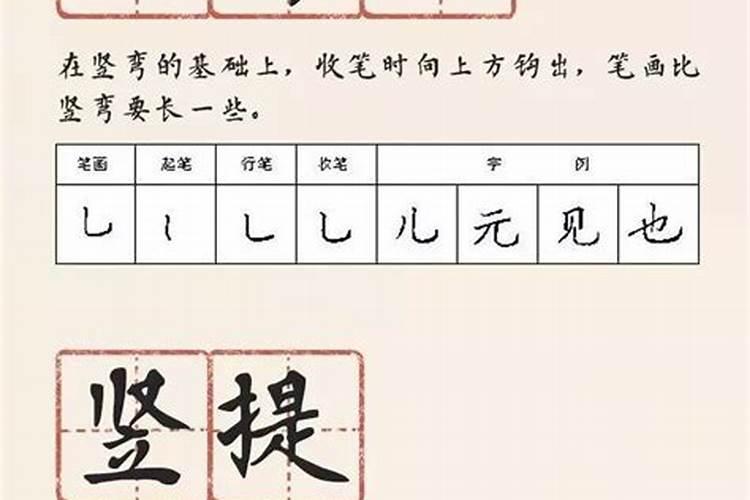 在竖弯的基础上，收笔时向上方钩出，笔画比
竖弯要长一些。
笔画 起笔 行笔 收笔 字 例
乚 丨 乚 乚 儿 元 见 也
竖提